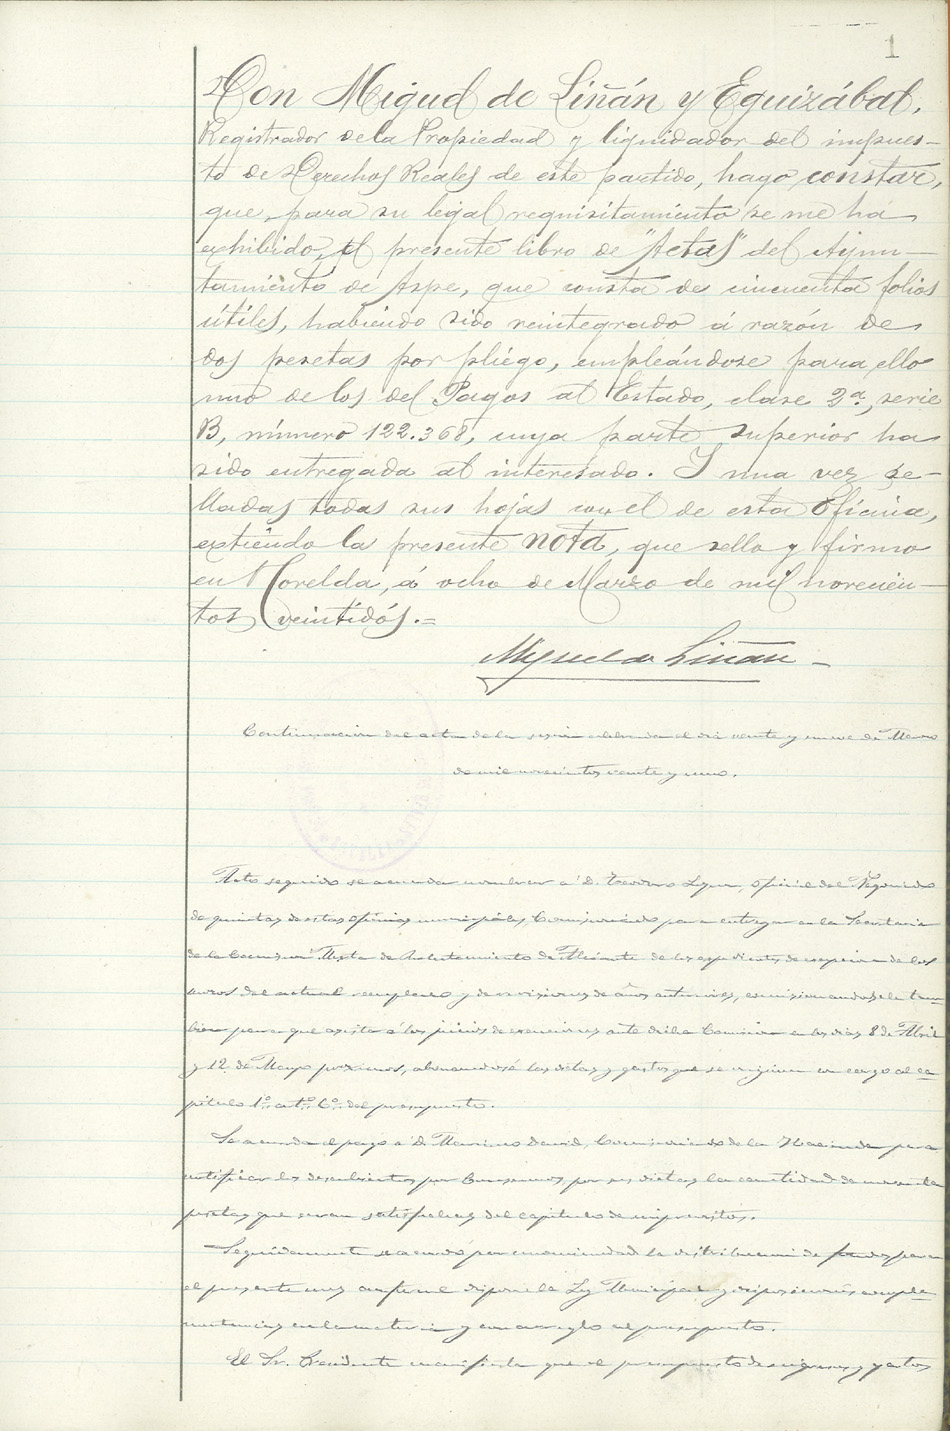 1
Don Miguel de Liñán y Eguizábal,
Registrador de la Propiedad y liquidador del impues-
to de Derechos Reales de este partido, hago constar,
que, para su legal requisitamiento se me ha
exhibido, el presente libro de "Actas" del Ayun-
tamiento de Aspe, que consta de cincuenta folios
útiles, habiendo sido reintegrado á razón de
dos pesetas por pliego, empleándose para ello
uno de los del Pagos al Estado, clase 2ª, serie
B, número 122.368, cuya parte superior ha
sido entregada al interesado. Y una vez se-
lladas todas sus hojas con el de esta Oficina,
extiendo la presente nota, que sello y firmo
en Novelda, á ocho de Marzo de mil novecien-
tos veintidós.=
Miguel de Liñán
Continuación del acta de la sesión celebrada el dia veinte y nueve de Marzo
de mil novecientos veinte y uno.
Acto seguido se acuerda nombrar a D. Teodoro Oficial del Negociado
de quintas de estas oficinas municipales, Comisionado para entregar en la Secretaria
de la Comisión Mixta de Reclutamiento de Alicante de los expedientes de excepcion de los
mozos del actual reemplazo y de revisiones de años anteriores, comisionandosele tam-
bien para que asista á los juicios de exenciones ante dicha Comision en los dias 8 de Abril
y 12 de Mayo proximos, abonandosé las dietas y gastos que se originen con cargo al ca-
pitulo 1º artº 6º del presupuesto.
Se acuerda el pago a D. Mariano David, Comisionado de la Hacienda para
notificar los descubiertos por Consumos, por sus dietas la cantidad de
pesetas que seran satisfechas del capitulo de imprevistos.
Seguidamente se acordó por unanimidad la distribucion de fondos para
el presente mes conforme dispone la Ley Municipal y disposiciones comple-
mentarias en la materia y con arreglo al presupuesto.
El Sr. Presidente manifiesta que el presupuesto de ingresos y gastos